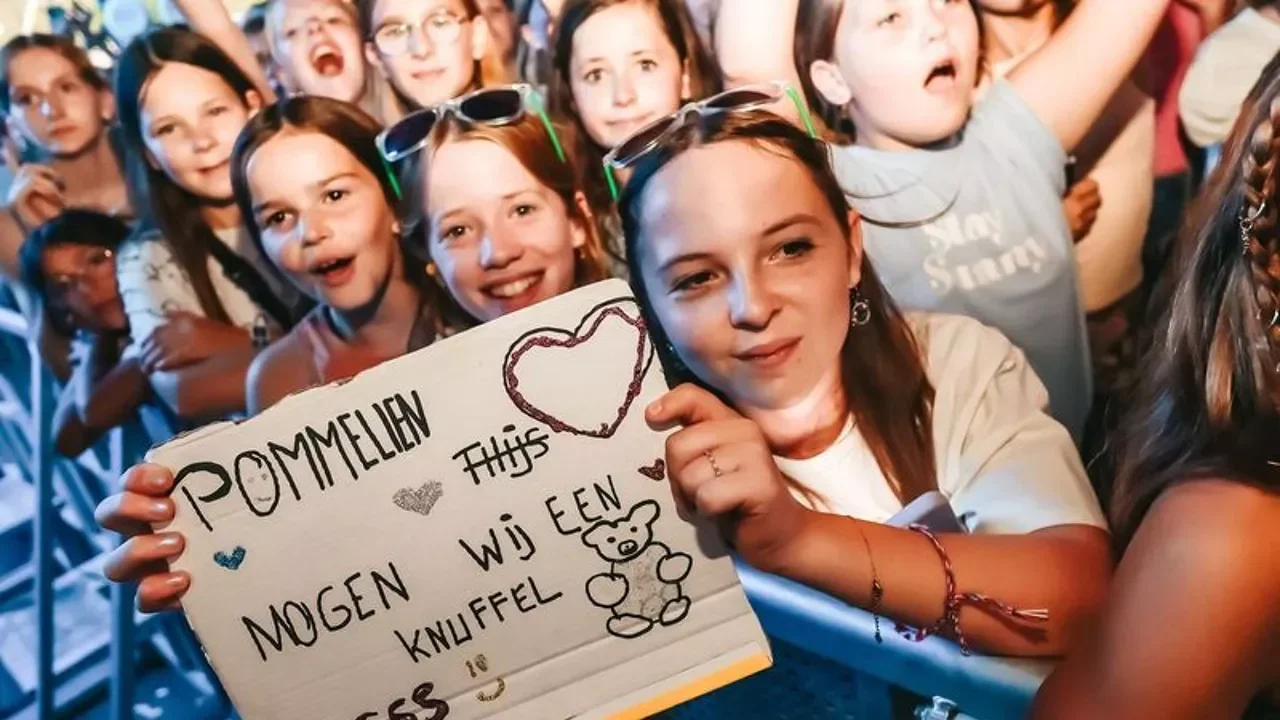 POMMELIEN
Thijs
MOGEN WIJ EEN
KNUFFEL
Stay
Sunny